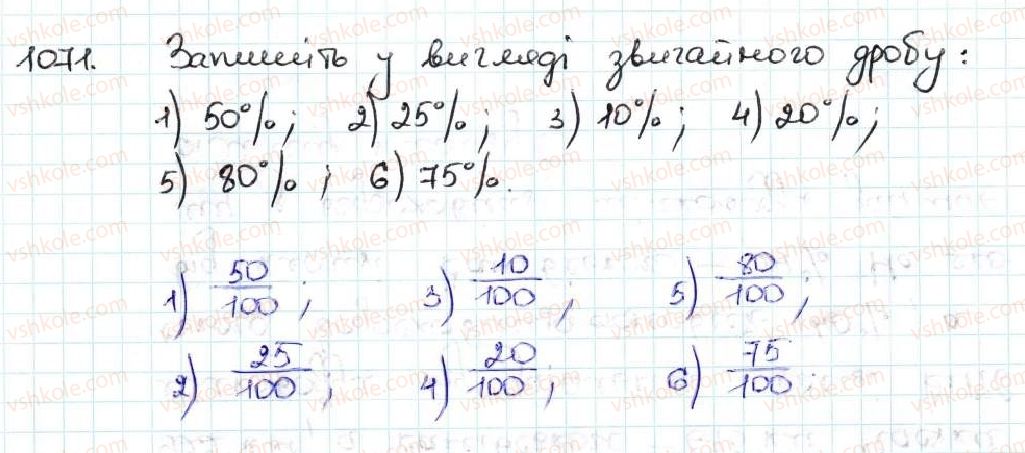 1071. Запишіть у вигляді звичайного дробу:
1) 50%; 2) 25%; 3) 10%; 4) 20%;
5) 80%; 6) 75%.
1) 50/100; 3) 10/100; 5) 80/100;
2) 25/100; 4) 20/100; 6) 75/100